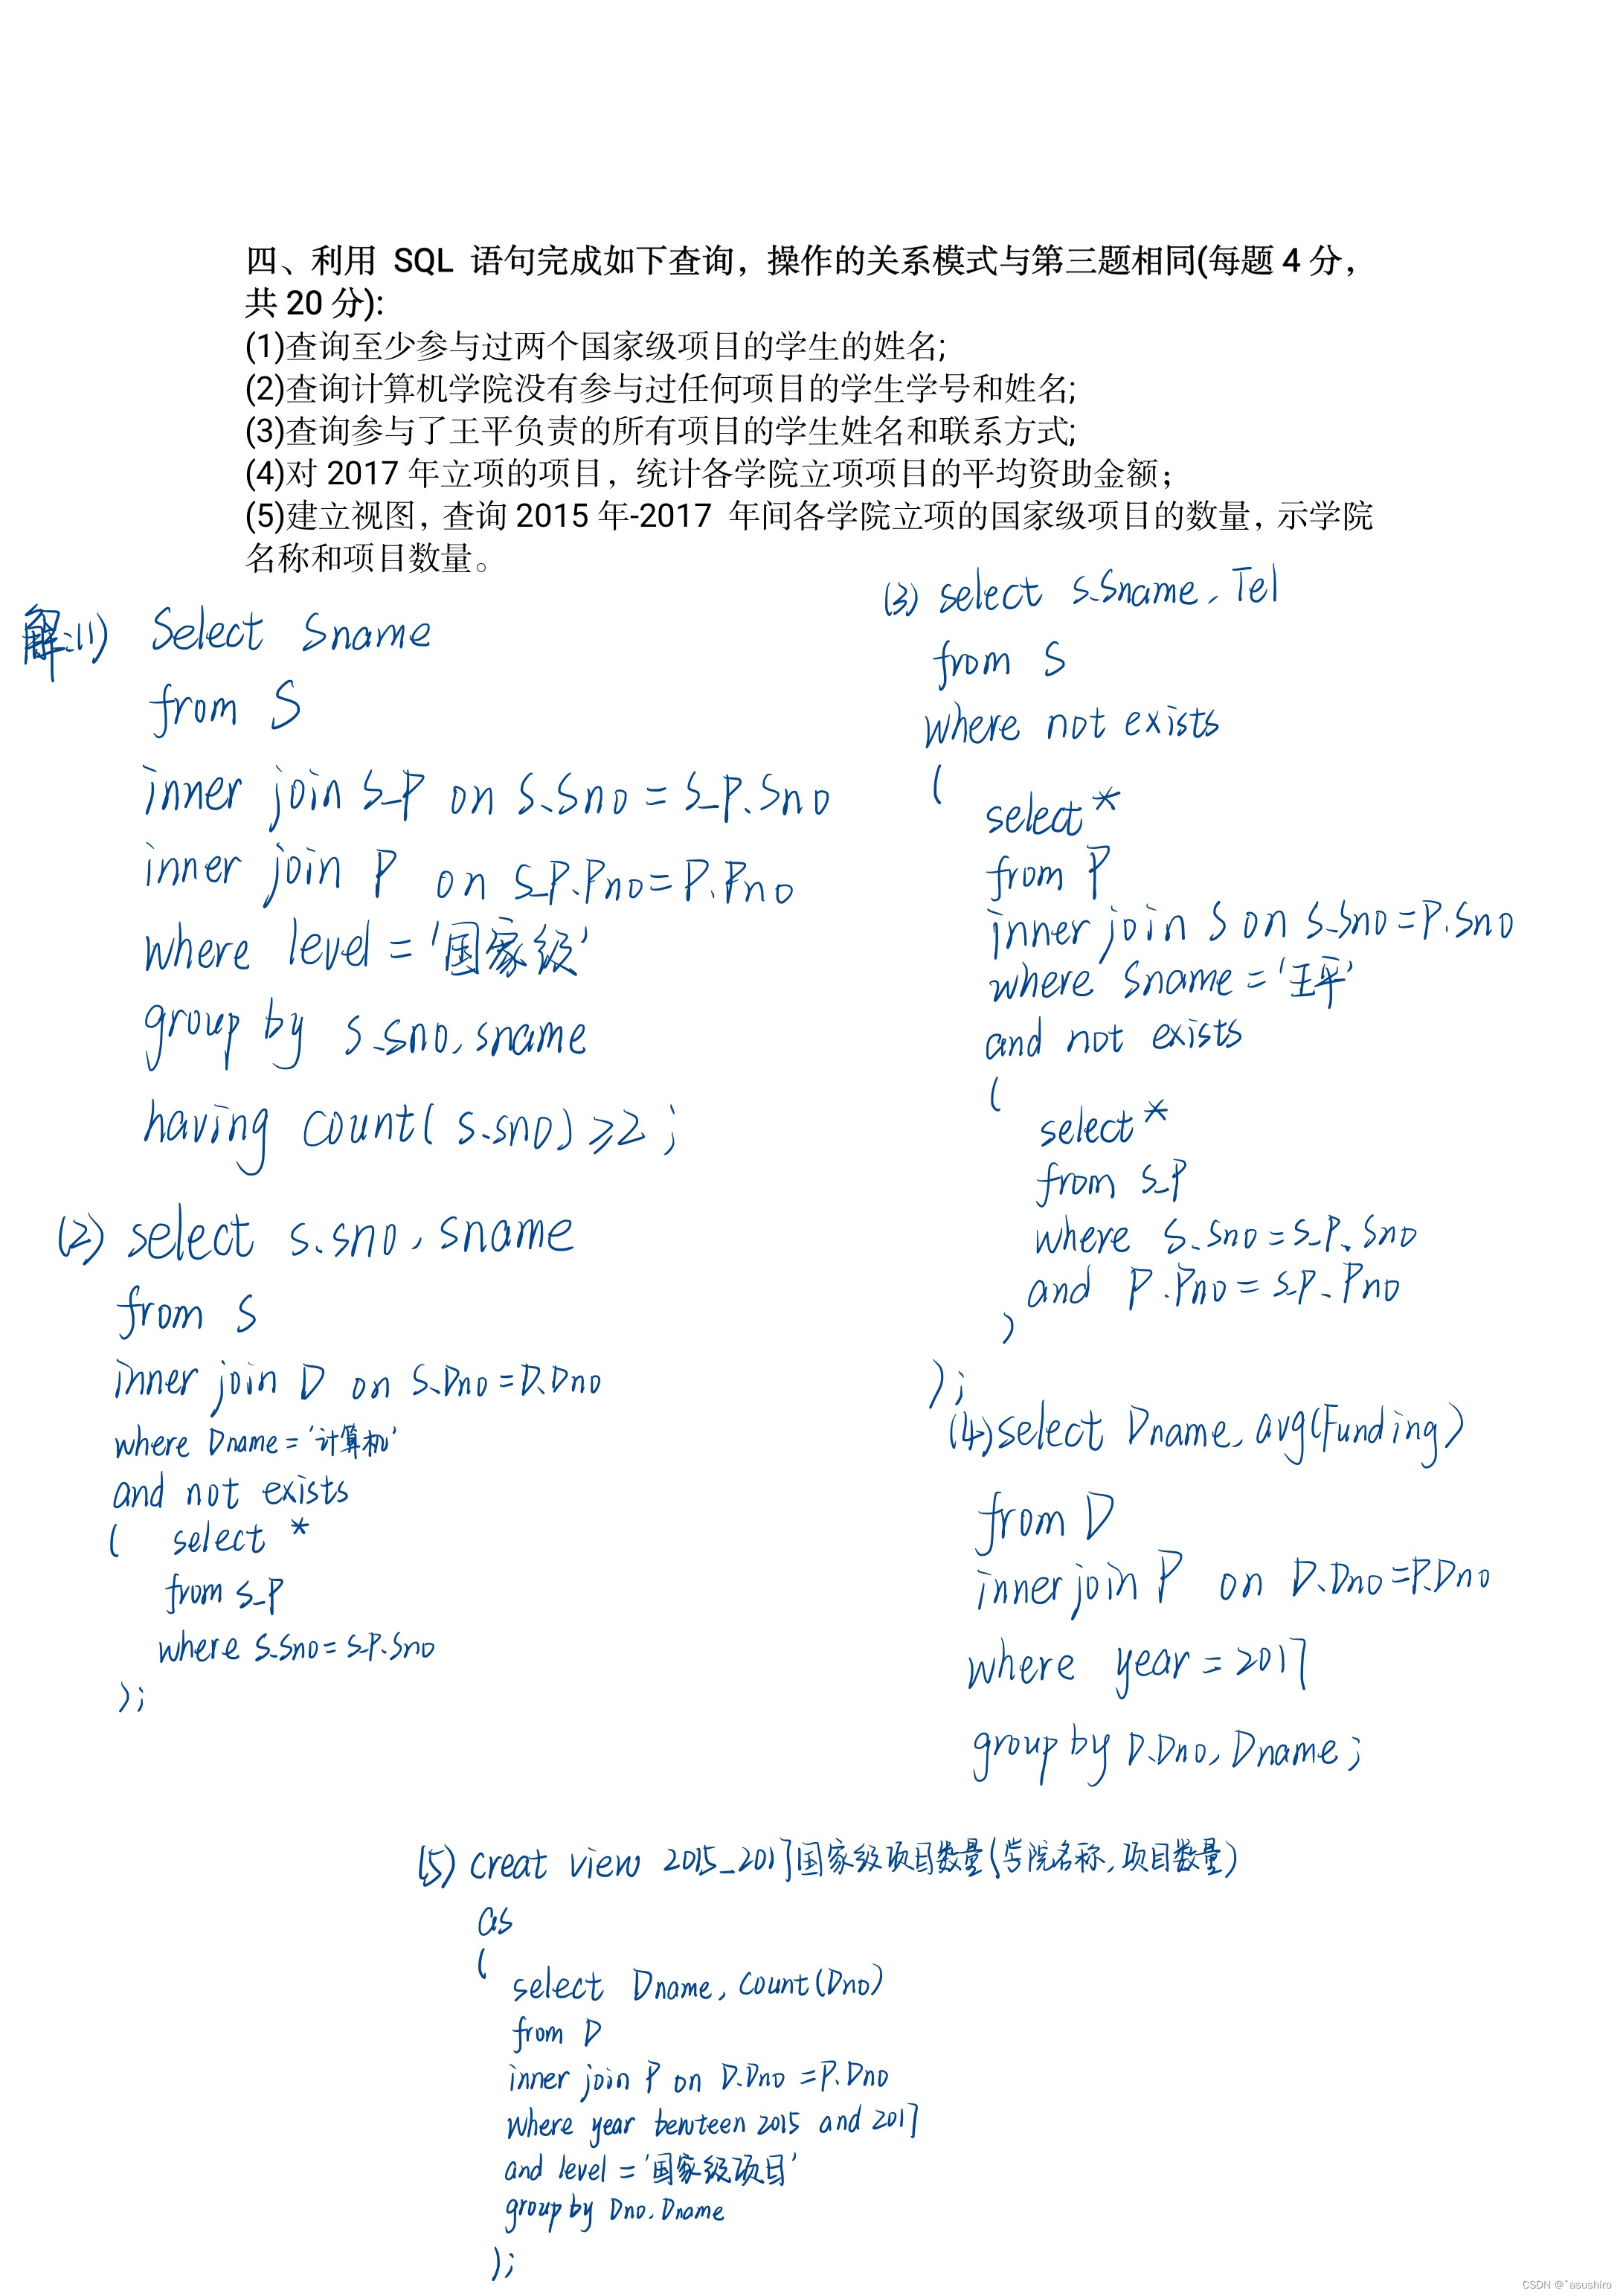 四、利用 SQL 语句完成如下查询，操作的关系模式与第三题相同(每题 4 分，
共 20 分):
(1)查询至少参与过两个国家级项目的学生的姓名;
(2)查询计算机学院没有参与过任何项目的学生学号和姓名;
(3)查询参与了王平负责的所有项目的学生姓名和联系方式;
(4)对 2017 年立项的项目，统计各学院立项项目的平均资助金额；
(5)建立视图，查询 2015 年-2017 年间各学院立项的国家级项目的数量，示学院
名称和项目数量。
解:(1) Select Sname
from S
inner join S_P on S.Sno = S_P.Sno
inner join P on S_P.Pno = P.Pno
where level = '国家级'
group by S.sno, sname
having count( s.sno) ≥2 ;
(2) select s.sno, sname
from S
inner join D on S.Dno = D.Dno
where Dname = '计算机'
and not exists
( select *
from S_P
where S.Sno = S_P.Sno
);
(3) select S.Sname, Tel
from S
where not exists
(
select *
from P
inner join S on S.Sno = P.Sno
where Sname = '王平'
and not exists
(
select *
from S_P
where S.Sno = S_P.Sno
and P.Pno = S_P.Pno
)
);
(4) select Dname, avg(Funding)
from D
inner join P on D.Dno = P.Dno
where year = 2017
group by D.Dno, Dname ;
(5) creat view 2015_2017国家级项目数量(学院名称, 项目数量)
as
(
select Dname, count(Dno)
from D
inner join P on D.Dno = P.Dno
where year bewteen 2015 and 2017
and level = '国家级项目'
group by Dno, Dname
);
CSDN @ˇasushiro